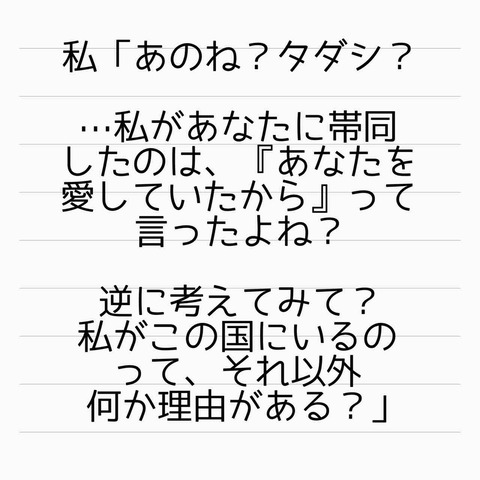 私「あのね？タダシ？
…私があなたに帯同
したのは、『あなたを
愛していたから』って
言ったよね？
逆に考えてみて？
私がこの国にいるの
って、それ以外
何か理由がある？」